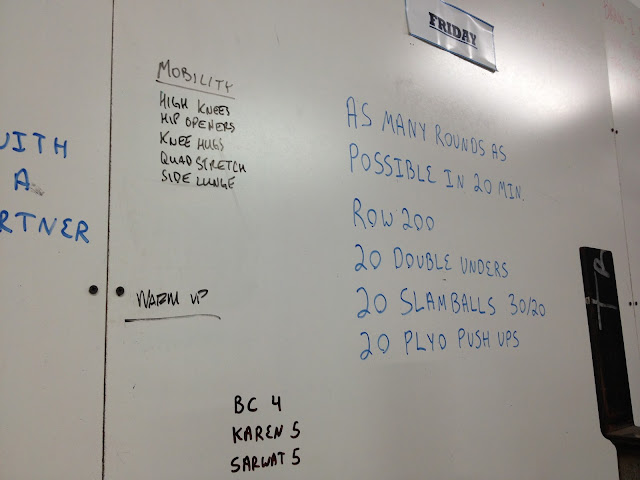 FRIDAY
WITH
A
RTNER
MOBILITY
HIGH KNEES
HIP OPENERS
KNEE HUGS
QUAD STRETCH
SIDE LUNGE
WARM UP
AS MANY ROUNDS AS
POSSIBLE IN 20 MIN.
ROW 200
20 DOUBLE UNDERS
20 SLAMBALLS 30/20
20 PLYO PUSH UPS
BC 4
KAREN 5
SARWAT 5